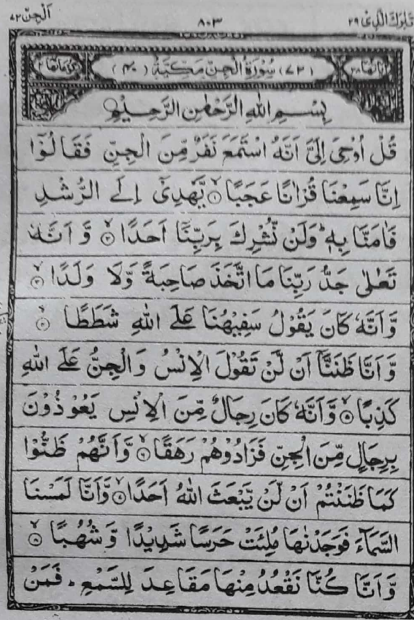 تبٰرك الذی ٢٩ ٨٠٣ الجن ٧٢
(٧٢) سُوْرَةُ الْجِنِّ مَكِّيَّةٌ (٤٠)
بِسْمِ اللهِ الرَّحْمٰنِ الرَّحِيْمِ
قُلْ اُوْحِيَ اِلَيَّ اَنَّهُ اسْتَمَعَ نَفَرٌ مِّنَ الْجِنِّ فَقَالُوْۤا
اِنَّا سَمِعْنَا قُرْاٰنًا عَجَبًا ۙ يَّهْدِيْۤ اِلَى الرُّشْدِ
فَاٰمَنَّا بِهٖ ؕ وَلَنْ نُّشْرِكَ بِرَبِّنَاۤ اَحَدًا ۙ وَّ اَنَّهٗ
تَعٰلٰى جَدُّ رَبِّنَا مَا اتَّخَذَ صَاحِبَةً وَّلَا وَلَدًا ۙ
وَّاَنَّهٗ كَانَ يَقُوْلُ سَفِيْهُنَا عَلَى اللهِ شَطَطًا ۙ
وَّ اَنَّا ظَنَنَّاۤ اَنْ لَّنْ تَقُوْلَ الْاِنْسُ وَالْجِنُّ عَلَى اللهِ
كَذِبًا ۙ وَّاَنَّهٗ كَانَ رِجَالٌ مِّنَ الْاِنْسِ يَعُوْذُوْنَ
بِرِجَالٍ مِّنَ الْجِنِّ فَزَادُوْهُمْ رَهَقًا ۙ وَّاَنَّهُمْ ظَنُّوْا
كَمَا ظَنَنْتُمْ اَنْ لَّنْ يَّبْعَثَ اللهُ اَحَدًا ۙ وَّاَنَّا لَمَسْنَا
السَّمَآءَ فَوَجَدْنٰهَا مُلِئَتْ حَرَسًا شَدِيْدًا وَّ شُهُبًا ۙ
وَّاَنَّا كُنَّا نَقْعُدُ مِنْهَا مَقَاعِدَ لِلسَّمْعِ ؕ فَمَنْ